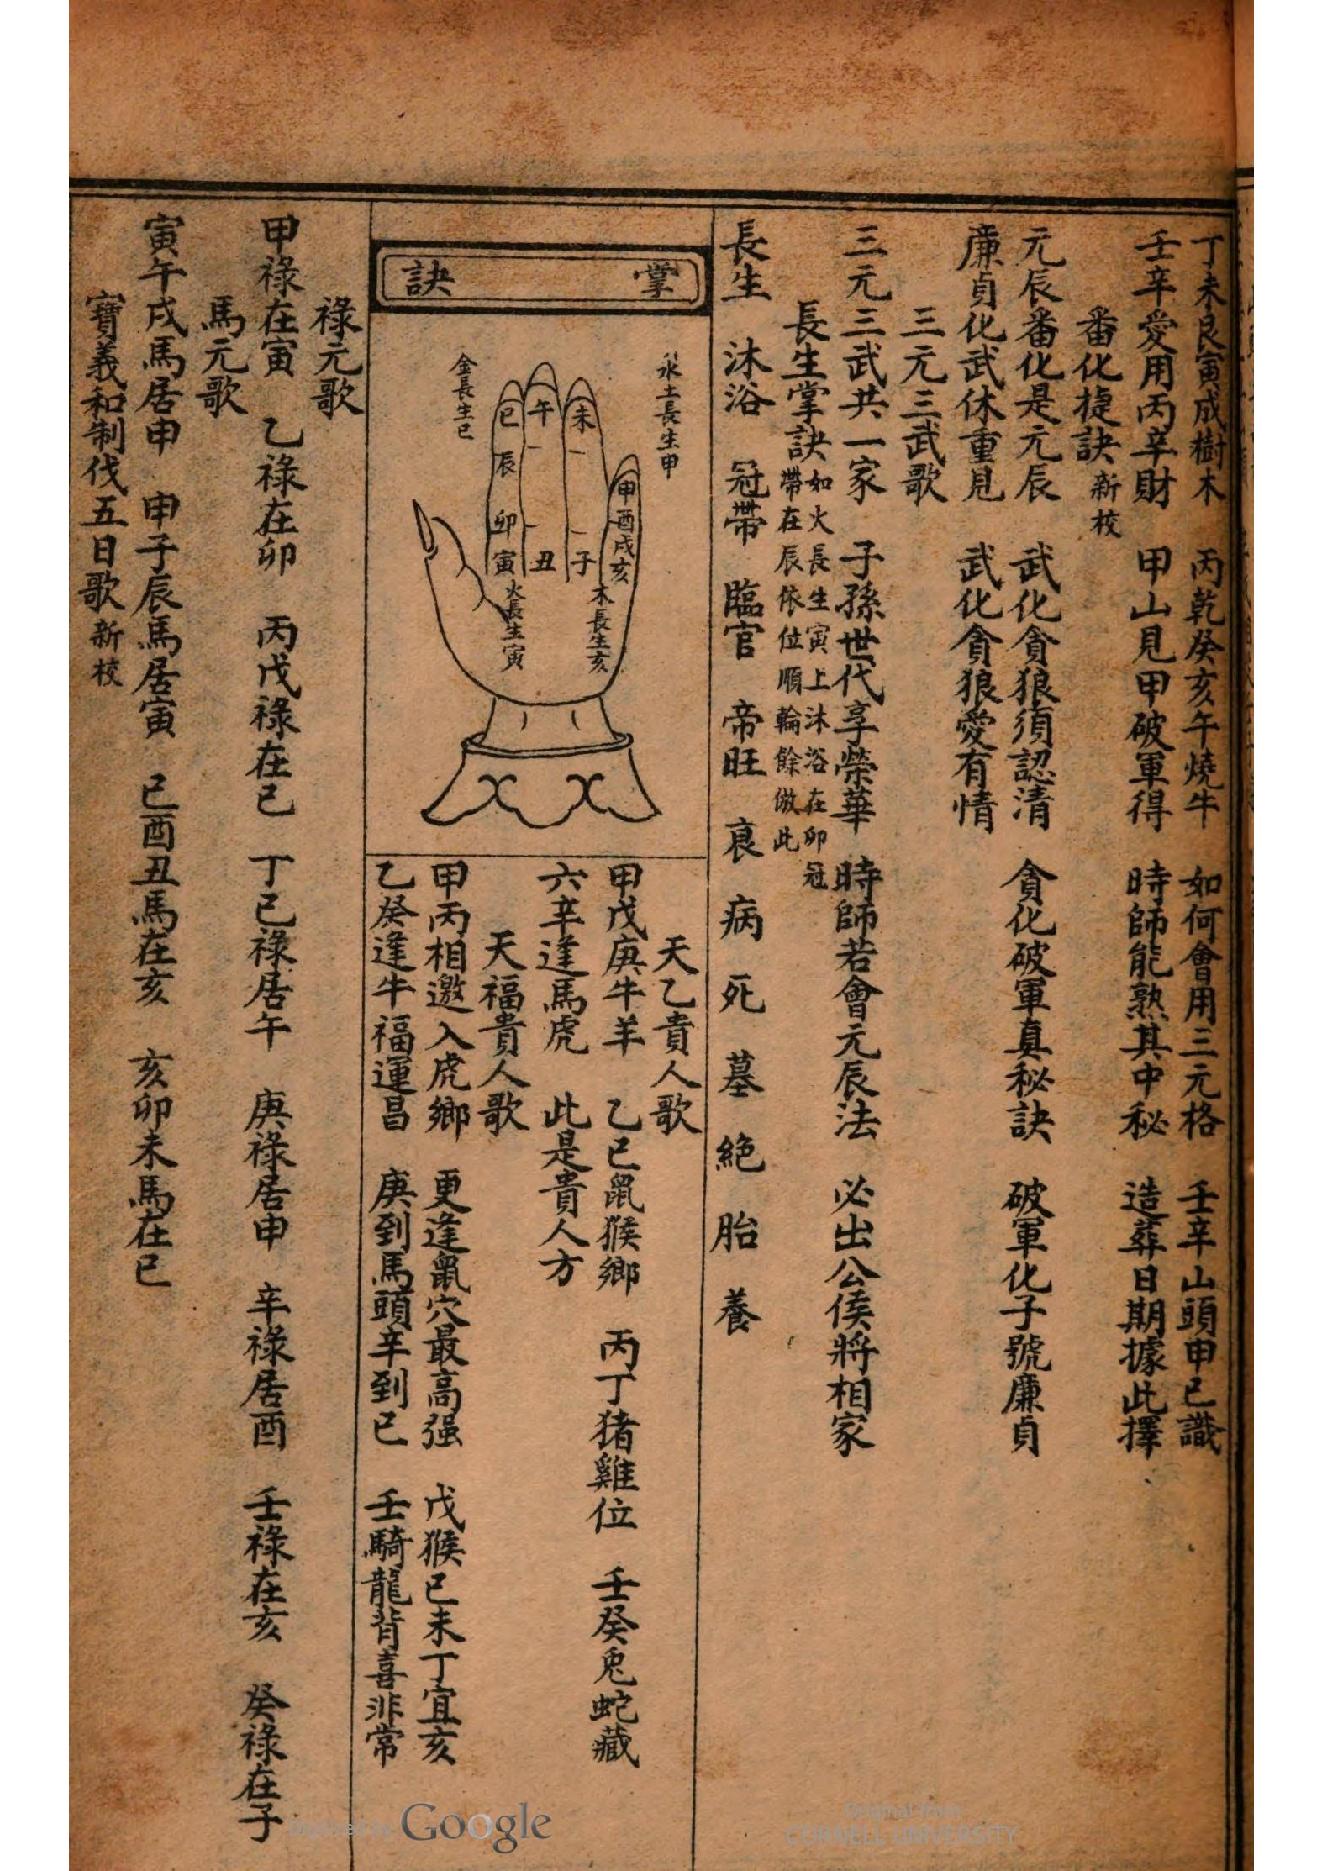 丁未艮寅成樹木　丙乾癸亥午燒牛　如何會用三元格　壬辛山頭申已識
壬辛愛用丙辛財　甲山見甲破軍得　時師能熟其中秘　造葬日期據此擇
番化捷訣 新校
元辰番化是元辰　武化貪狼須認清　貪化破軍真秘訣　破軍化子號廉貞
廉貞化武休重見　武化貪狼愛有情
三元三武歌
三元三武共一家　子孫世代享榮華　時師若會元辰法　必出公侯將相家
長生掌訣 如火長生寅上沐浴在卯冠
帶在辰依位順輪餘倣此
長生　沐浴　冠帶　臨官　帝旺　衰　病　死　墓　絕　胎　養
掌訣
水土長生申
金長生巳
未
午
巳
辰
卯
寅
丑
子
申酉戌亥
木長生亥
火長生寅
天乙貴人歌
甲戊庚牛羊　乙己鼠猴鄉　丙丁猪雞位　壬癸兎蛇藏
六辛逢馬虎　此是貴人方
天福貴人歌
甲丙相邀入虎鄉　更逢鼠穴最高强　戊猴己未丁宜亥
乙癸逢牛福運昌　庚到馬頭辛到巳　壬騎龍背喜非常
祿元歌
甲祿在寅　乙祿在卯　丙戊祿在巳　丁己祿居午　庚祿居申　辛祿居酉　壬祿在亥　癸祿在子
馬元歌
寅午戌馬居申　申子辰馬居寅　巳酉丑馬在亥　亥卯未馬在巳
寶義和制伐五日歌 新校
Digitized by Google
Original from
CORNELL UNIVERSITY